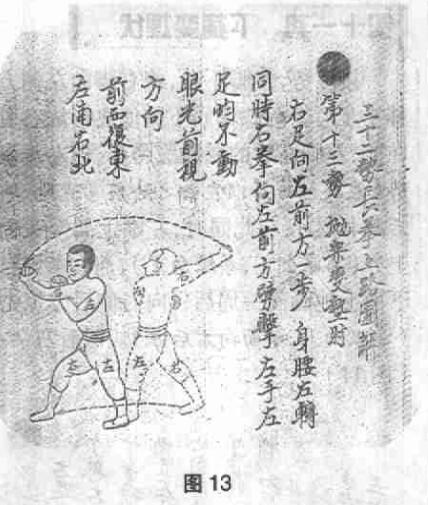 三十二勢長拳上路圖解
第十三勢 拋架
右足向左前方一步 身腰左轉
同時右拳向左前方劈擊 左手左
足均不動
眼光前視
方向
前西後東
左南右北
右
左
左
右
图 13